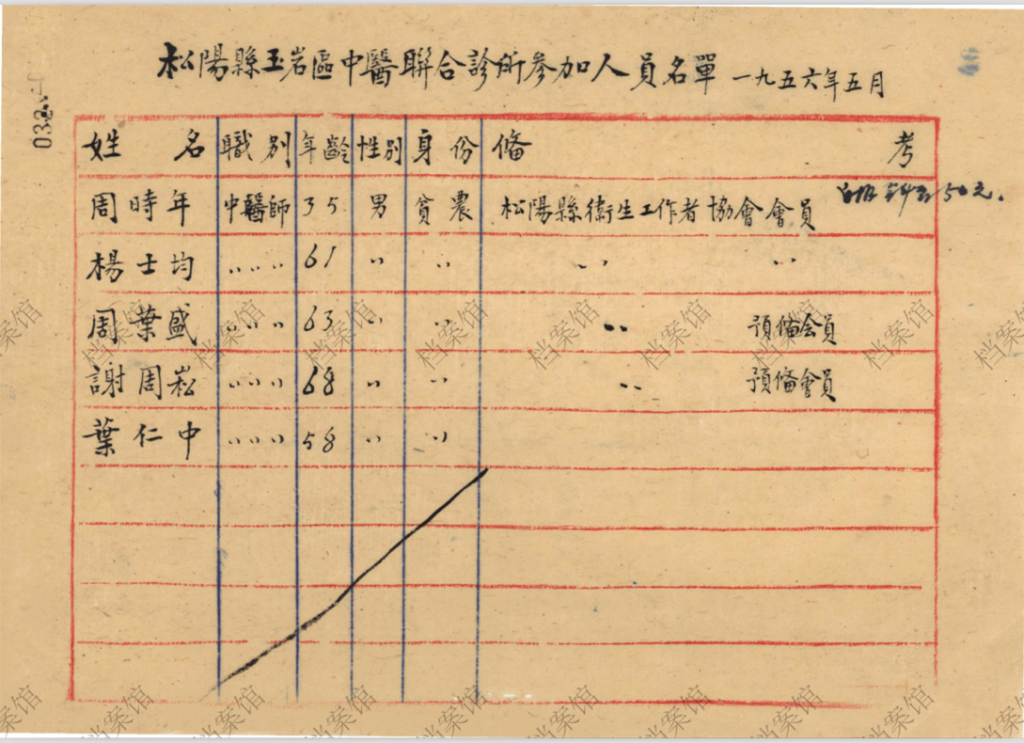 松陽縣玉岩區中醫聯合診所參加人員名單 一九五六年五月
姓 名 職別 年齡 性別 身份 備 考
周時年 中醫師 35 男 貧農 松陽縣衛生工作者協會會員 50元.
楊士均 〃〃〃 61 〃 〃 〃 〃
周葉盛 〃〃〃 63 〃 〃 〃 預備会員
謝周崧 〃〃〃 68 〃 〃 〃 預備會員
葉仁中 〃〃〃 58 〃 〃
档案馆 档案馆 档案馆 档案馆 档案馆
档案馆 档案馆 档案馆 档案馆 档案馆